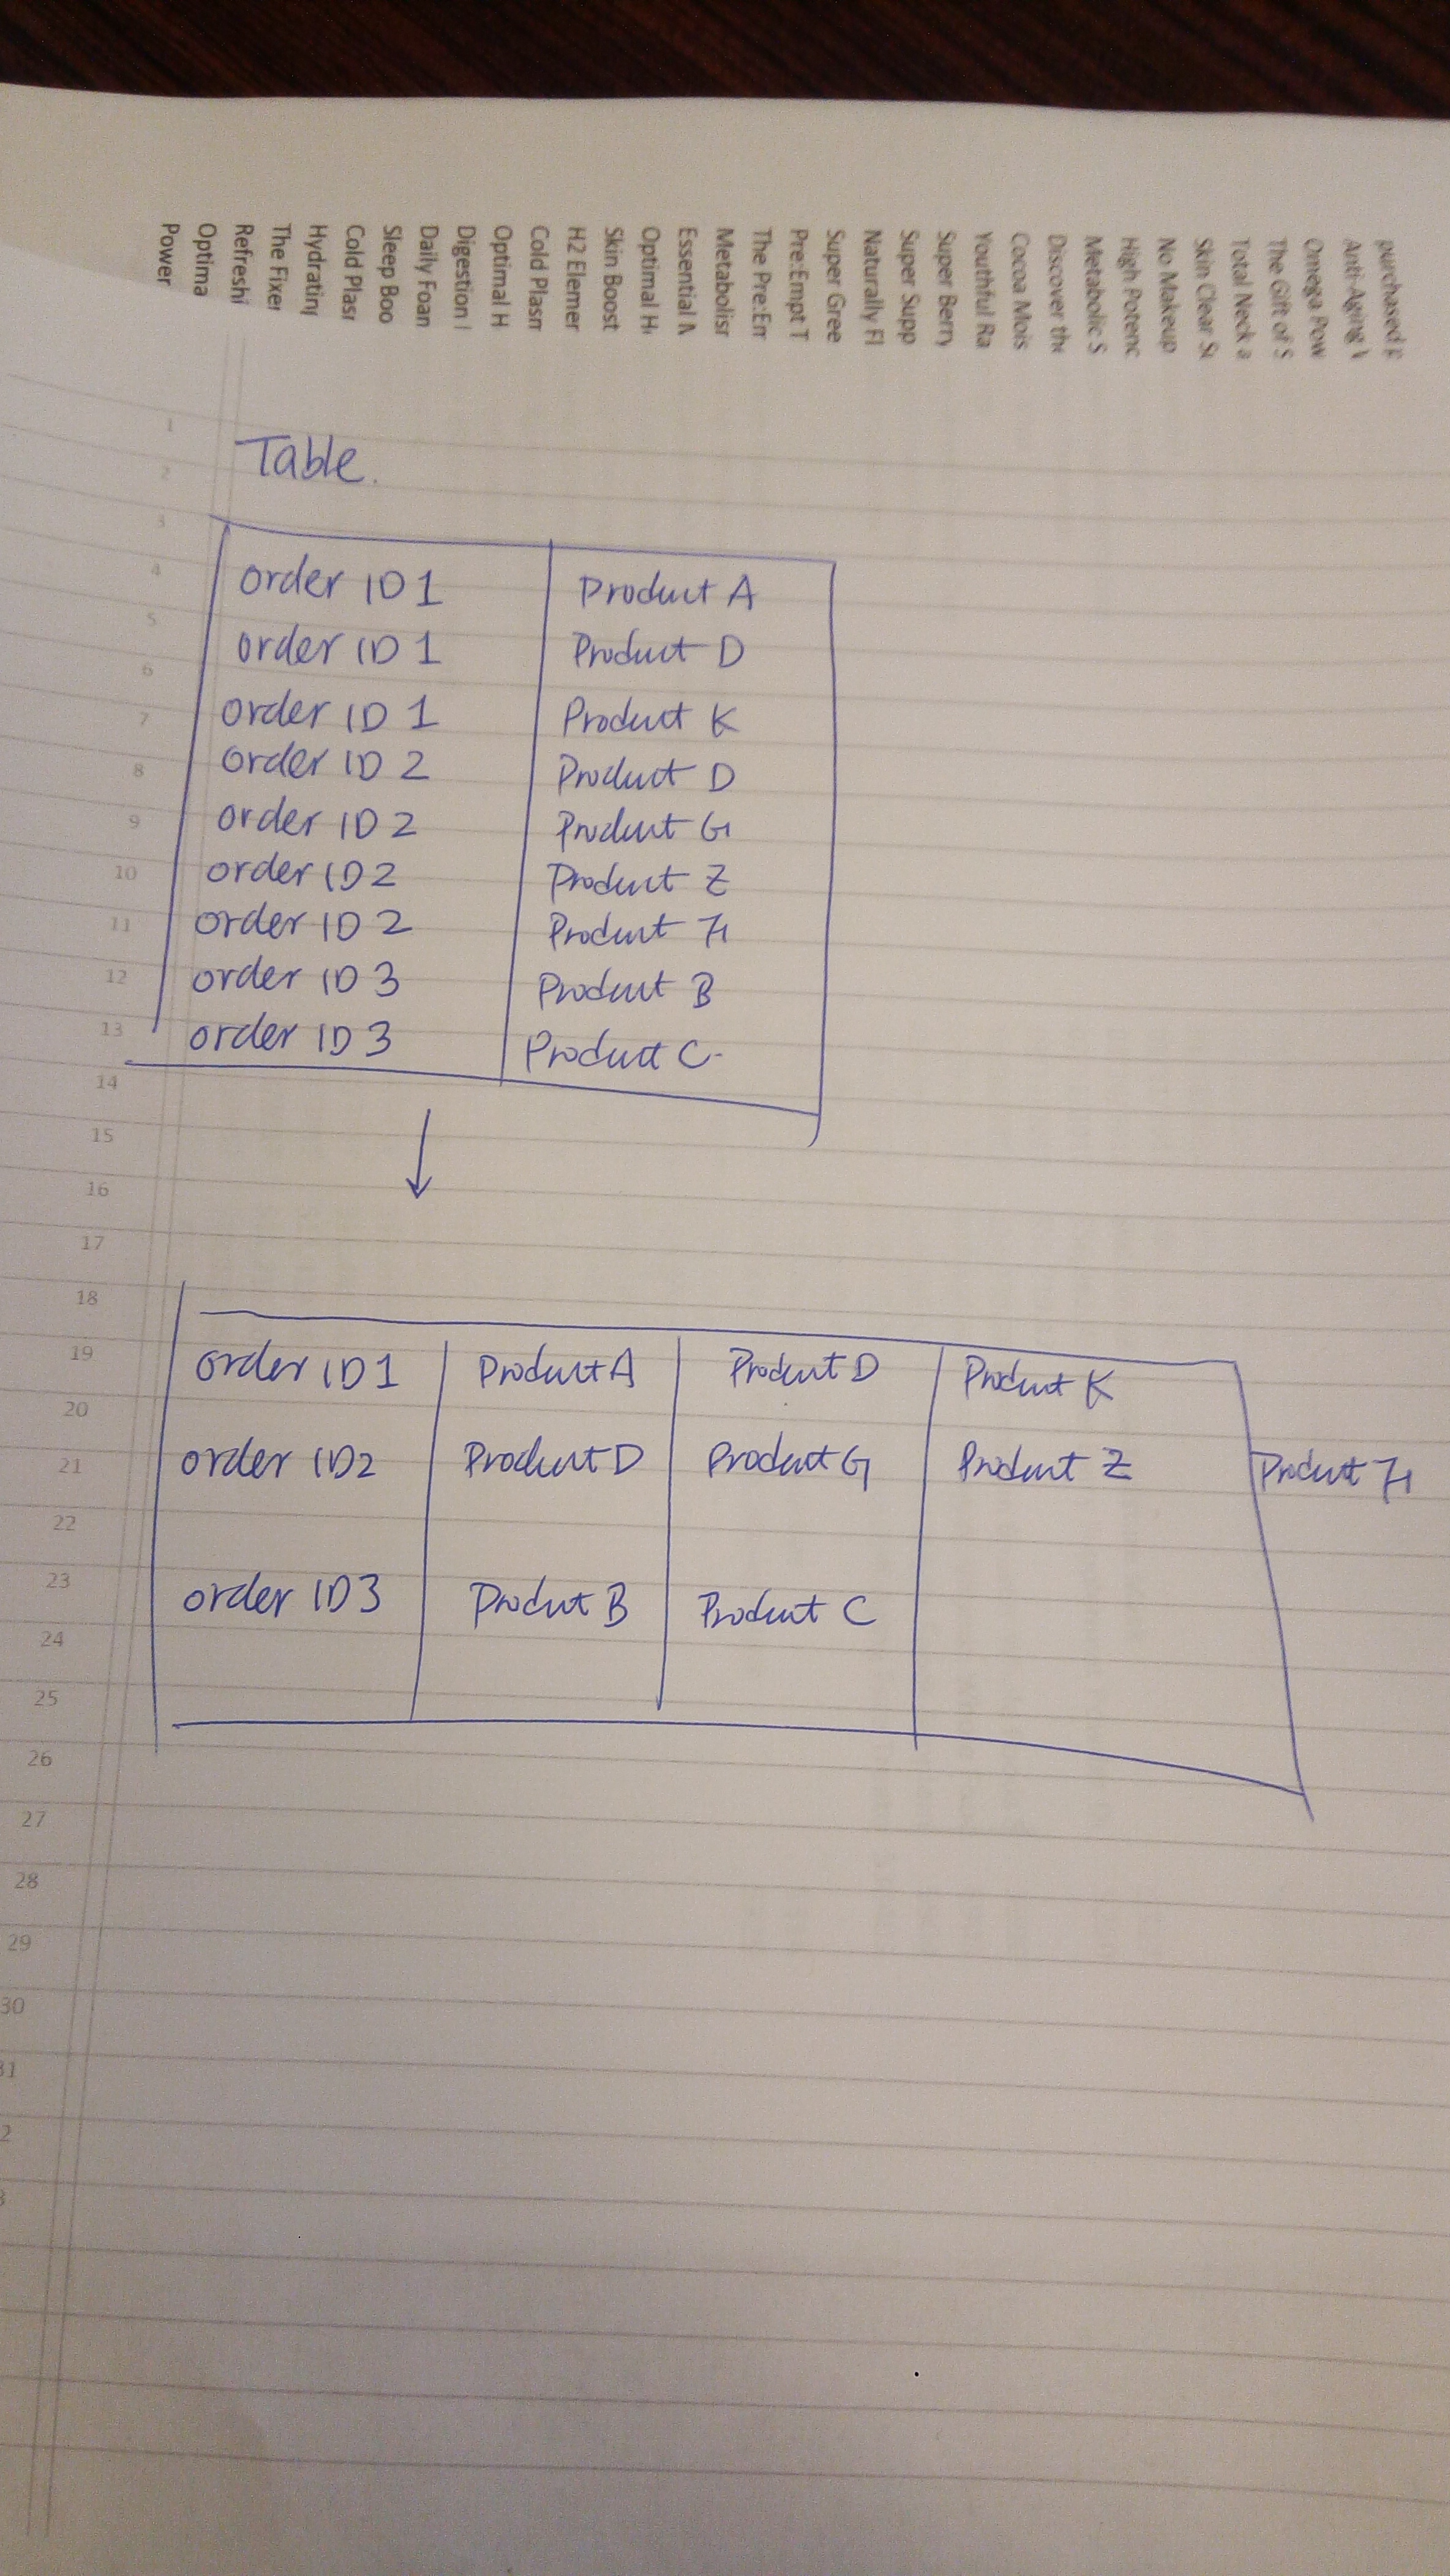 purchased p
Anti-Aging
Omega Pow
The Gift of S
Total Neck a
Skin Clear
No Makeup
High Potenc
Metabolic S
Discover the
Cocoa Mois
Youthful Ra
Super Berry
Super Supp
Naturally Fl
Super Gree
Pre:Empt T
The Pre:Em
Metabolisr
Essential
Optimal H
Skin Boost
H2 Elemer
Cold Plasm
Optimal H
Digestion
Daily Foan
Sleep Boo
Cold Plasr
Hydrating
The Fixer
Refreshi
Optima
Power
1
2 Table.
3
4 order ID 1 Product A
5
6 order ID 1 Product D
7 order ID 1 Product K
8 order ID 2 Product D
9 order ID 2 Product G
10 order ID 2 Product Z
11 order ID 2 Product
12 order ID 3 Product B
13 order ID 3 Product C
14
15
16
17
18
19 order ID 1 Product A Product D Product K
20
21 order ID2 Product D Product G Product Z Product
22
23 order ID3 Product B Product C
24
25
26
27
28
29
30
31
2
3